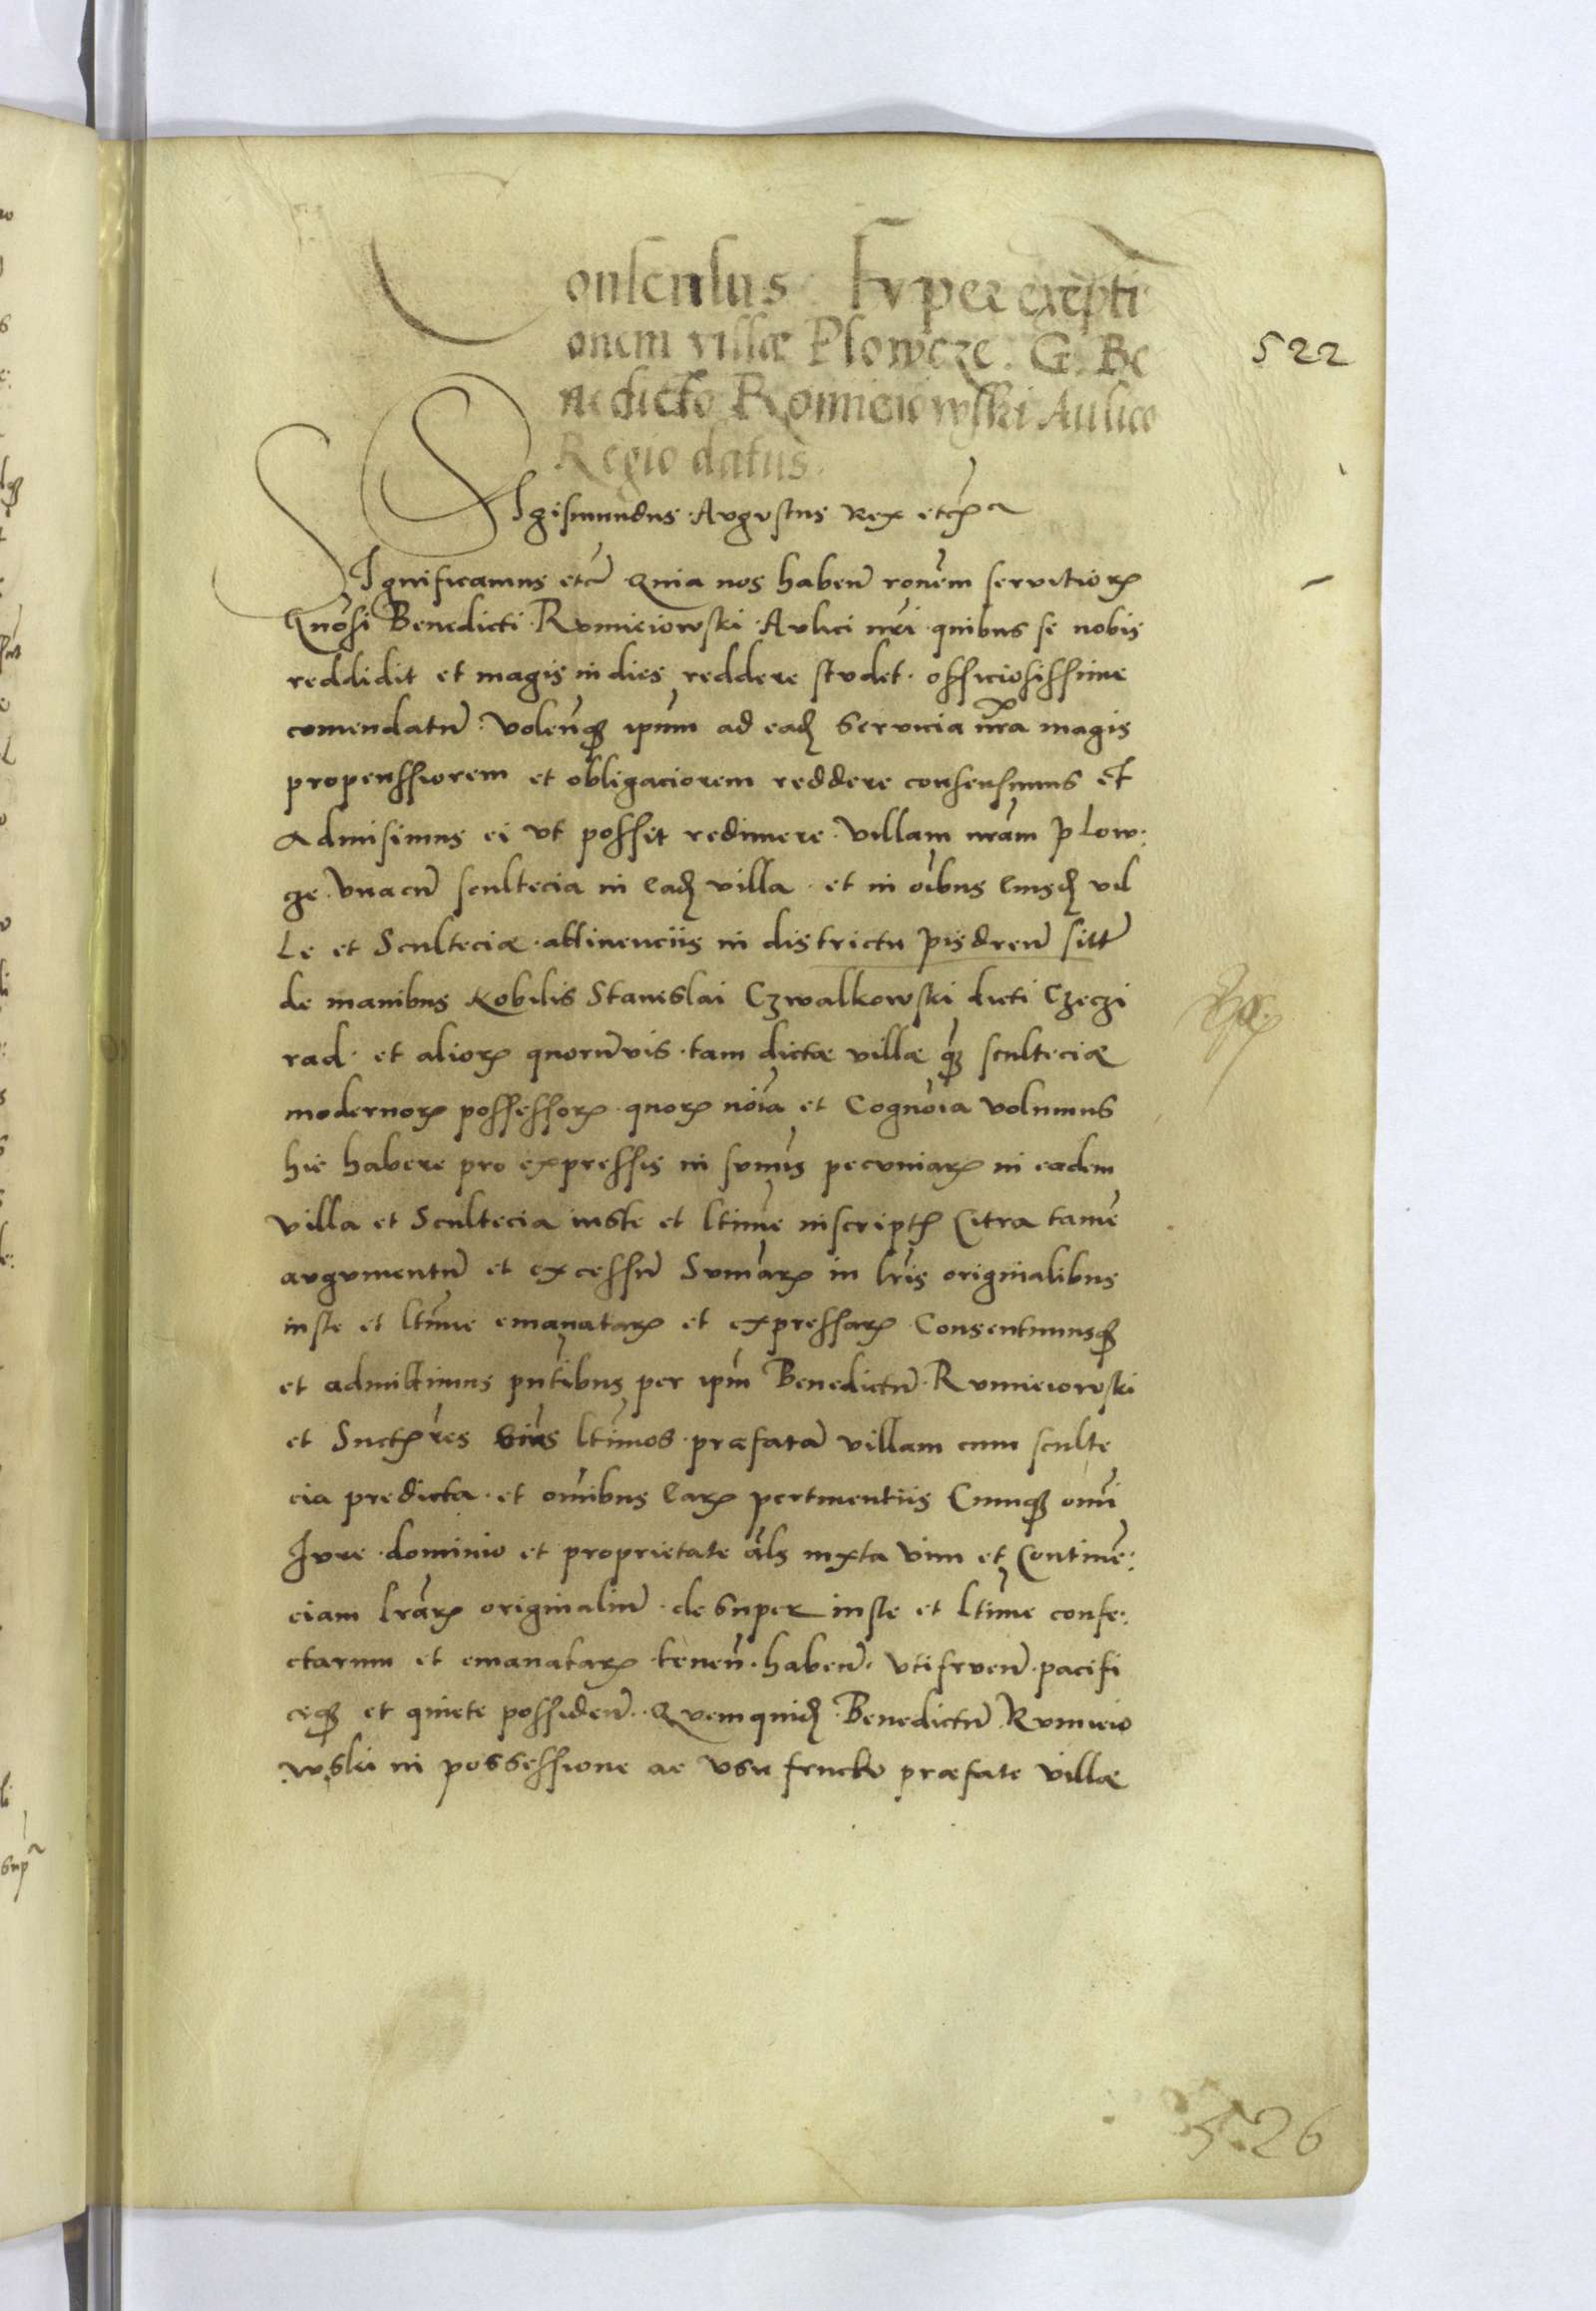 Consensus super exempti
onem villæ Plowcze. G. Be
nedicto Romieiowsski Aulico
Regio datus.
522
Sigismundus Augustus Rex etc̃
Significamus etc̃ Quia nos haben̄ ron̄em servitiorꝝ
gn̄osi Benedicti Rumieiowski Aulici nr̄i quibus se nobis
reddidit et magis in dies reddere studet officiosissime
comendatū volen̄qꝫ ip̄um ad eadꝫ servicia nr̄a magis
propenssiorem et obligaciorem reddere consensimus et
Admisimus ei vt possit redimere villam nr̄am Plow:
cze vnacū scultecia in eadꝫ villa et in oībus eiusdꝫ vil
le et Sculteciæ attinenciis in districtu pisdren̄ sitt̄
de manibus Nobilis Staneslai Czwalkowski dicti Czeczi
rad et aliorꝝ quorūvis tam dictæ villæ qꝫ sculteciæ
modernorꝝ possessorꝝ quorꝝ nōīa et Cognōīa volumus
hic habere pro expressis in sum̄is pecuniarꝝ in eadem
villa et Scultecia iuste et lt̄ime inscriptꝭ Citra tamē
augumentū et excessū Sum̄arꝝ in lr̄is originalibus
iuste et lt̄ime emanatarꝝ et expressarꝝ Consentimusqꝫ
et admittimus pn̄tibus per ip̄m Benedictū Rumieiowski
et Suctꝭres eius lt̄imos præfatā villam cum sculte
cia predicta et om̄ibus earꝝ pertinentiis Cumqꝫ om̄i
Iure dominio et proprietate āls iuxta vim et Continē:
ciam lr̄arꝝ originaliū desuper iuste et lt̄ime confe:
ctarum et emanatarꝝ tenen̄ haben̄ vtifruen̄ pacifi
ceqꝫ et quiete possiden̄ Quemquidꝫ Benedictū Rumieio
wski in possessione ac vsu fructu præfate villæ
526